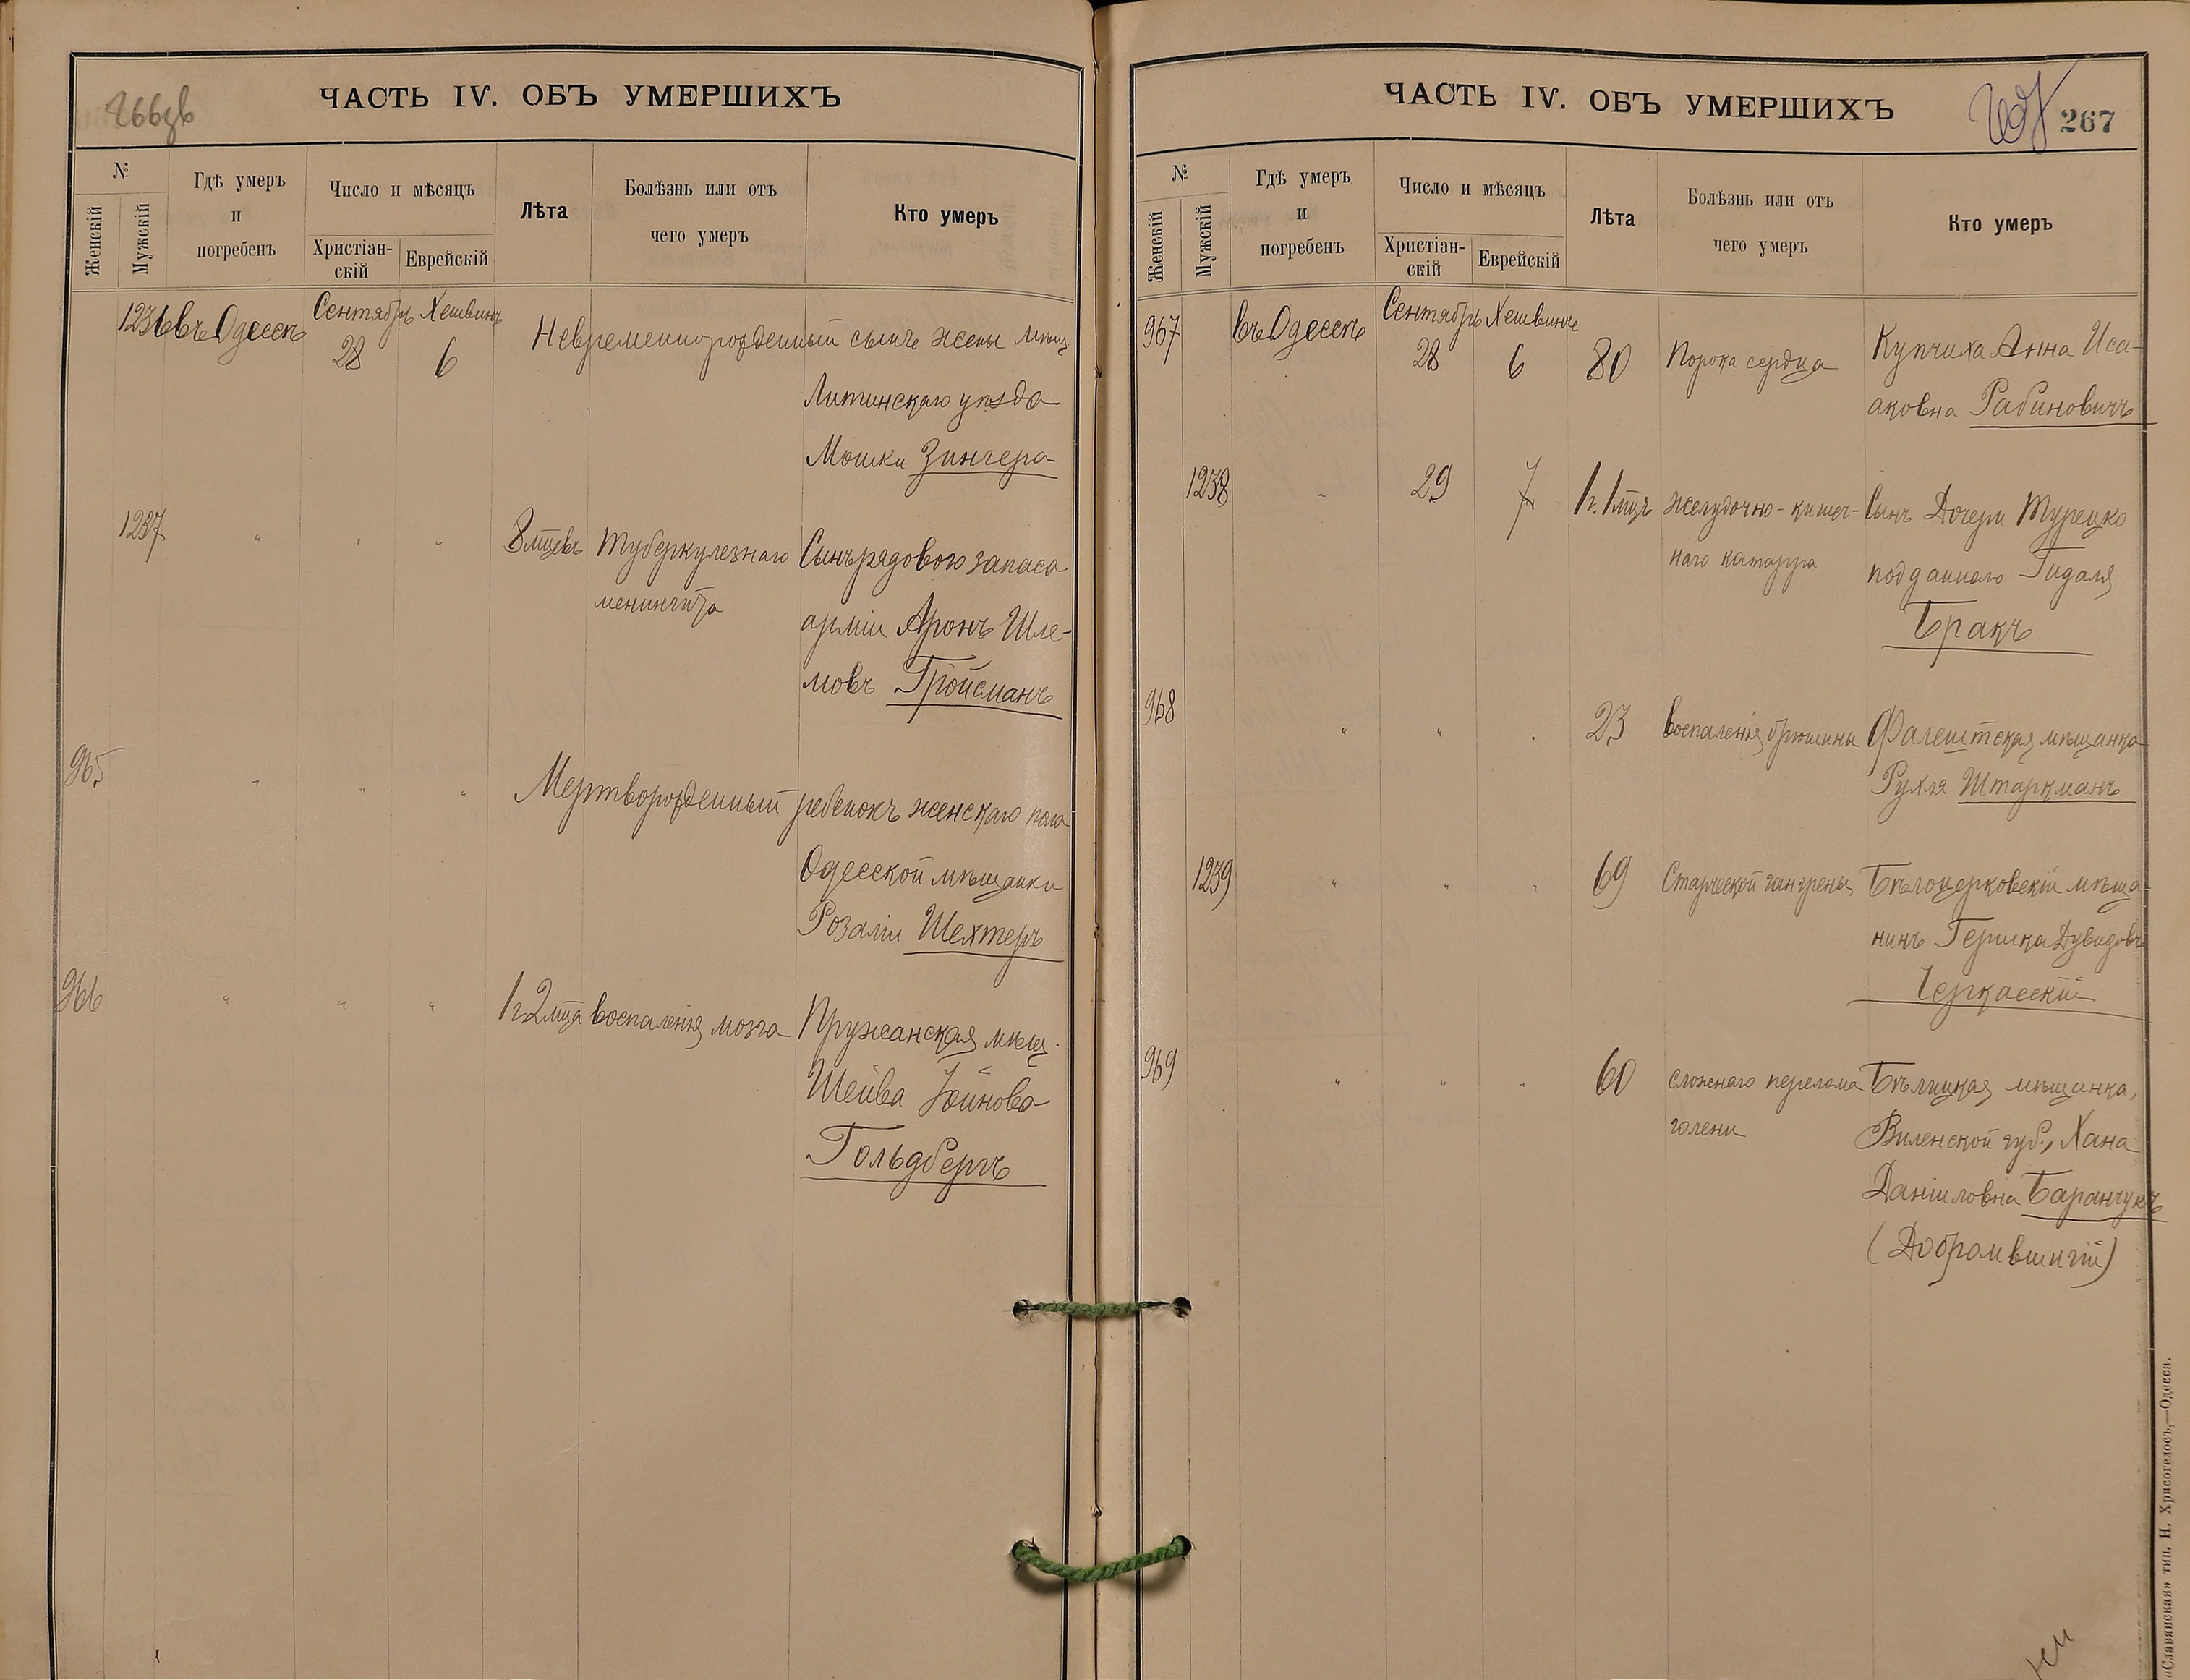 266зв
ЧАСТЬ IV. ОБЪ УМЕРШИХЪ
№
Женскій
Мужскій
Гдѣ умеръ
и
погребенъ
Число и мѣсяцъ
Христіан-
скій
Еврейскій
Лѣта
Болѣзнь или отъ
чего умеръ
Кто умеръ
1236 въ Одессѣ Сентябрь Хешвинъ
28 6 Невременнорожденный сынъ жены мѣщ.
Литинскаго уѣзда
Мошки Зингера
1237 " " " 8 мцевъ Туберкулезнаго Сынъ рядового запаса
менингита
арміи Аронъ Шле-
мовъ Гройсманъ
965 " " " Мертворожденный ребенокъ женскаго пола
Одесской мѣщанки
Розаліи Шехтеръ
966 " " " 1 г 2 мца воспаленія мозга Пружанская мѣщ.
Шейва Іойнова
Гольдбергъ
ЧАСТЬ IV. ОБЪ УМЕРШИХЪ
267
№
Женскій
Мужскій
Гдѣ умеръ
и
погребенъ
Число и мѣсяцъ
Христіан-
скій
Еврейскій
Лѣта
Болѣзнь или отъ
чего умеръ
Кто умеръ
967 въ Одессѣ Сентябрь Хешвинъ
28 6 80 Порока сердца Купчиха Анна Иса-
аковна Рабиновичъ
1238 " 29 7 1 г. 1 мцъ желудочно-кишеч- Сынъ Дочери Турецко
наго катарра подданнаго Гидаля
Бракъ
968 " " " 23 воспаленія брюшины Фалештская мѣщанка
Рухля Штаркманъ
1239 " " " 69 Старческой гангрены Бѣлоцерковскій мѣща-
нинъ Гершка Дувидовъ
Черкасскій
969 " " " 60 сложнаго перелома Бѣлицкая мѣщанка,
голени Виленской губ., Хана
Даніиловна Баранчукъ
«Славянская» тип. Н. Хрисогелосъ,—Одесса.